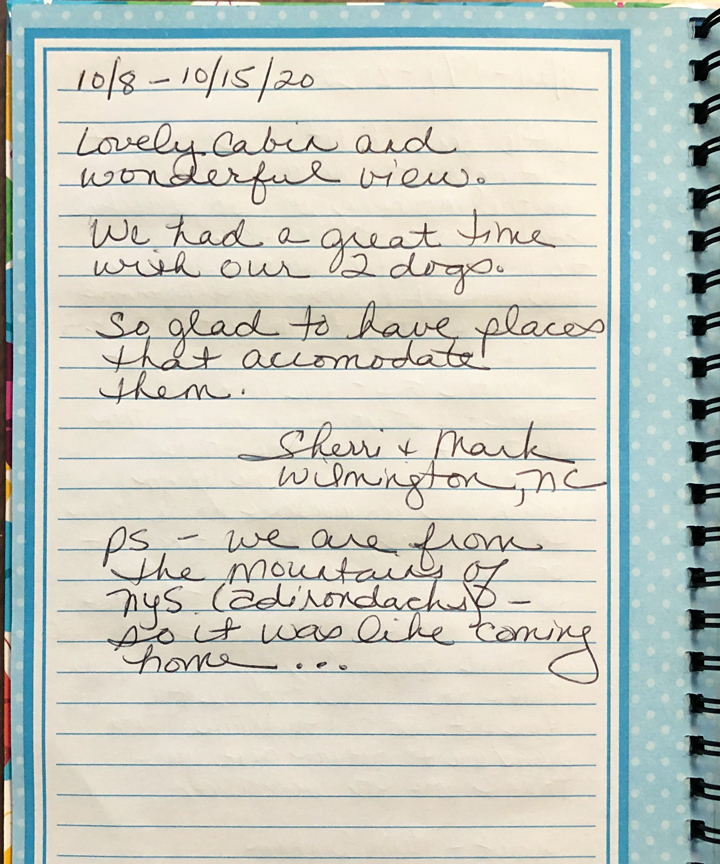 10/8 - 10/15/20
Lovely Cabin and
wonderful view.
We had a great time
with our 2 dogs.
So glad to have places
that accomodate
them.
Sherri + Mark
Wilmington, NC
PS - we are from
the mountains of
NYS (adirondacks) -
so it was like coming
home ...